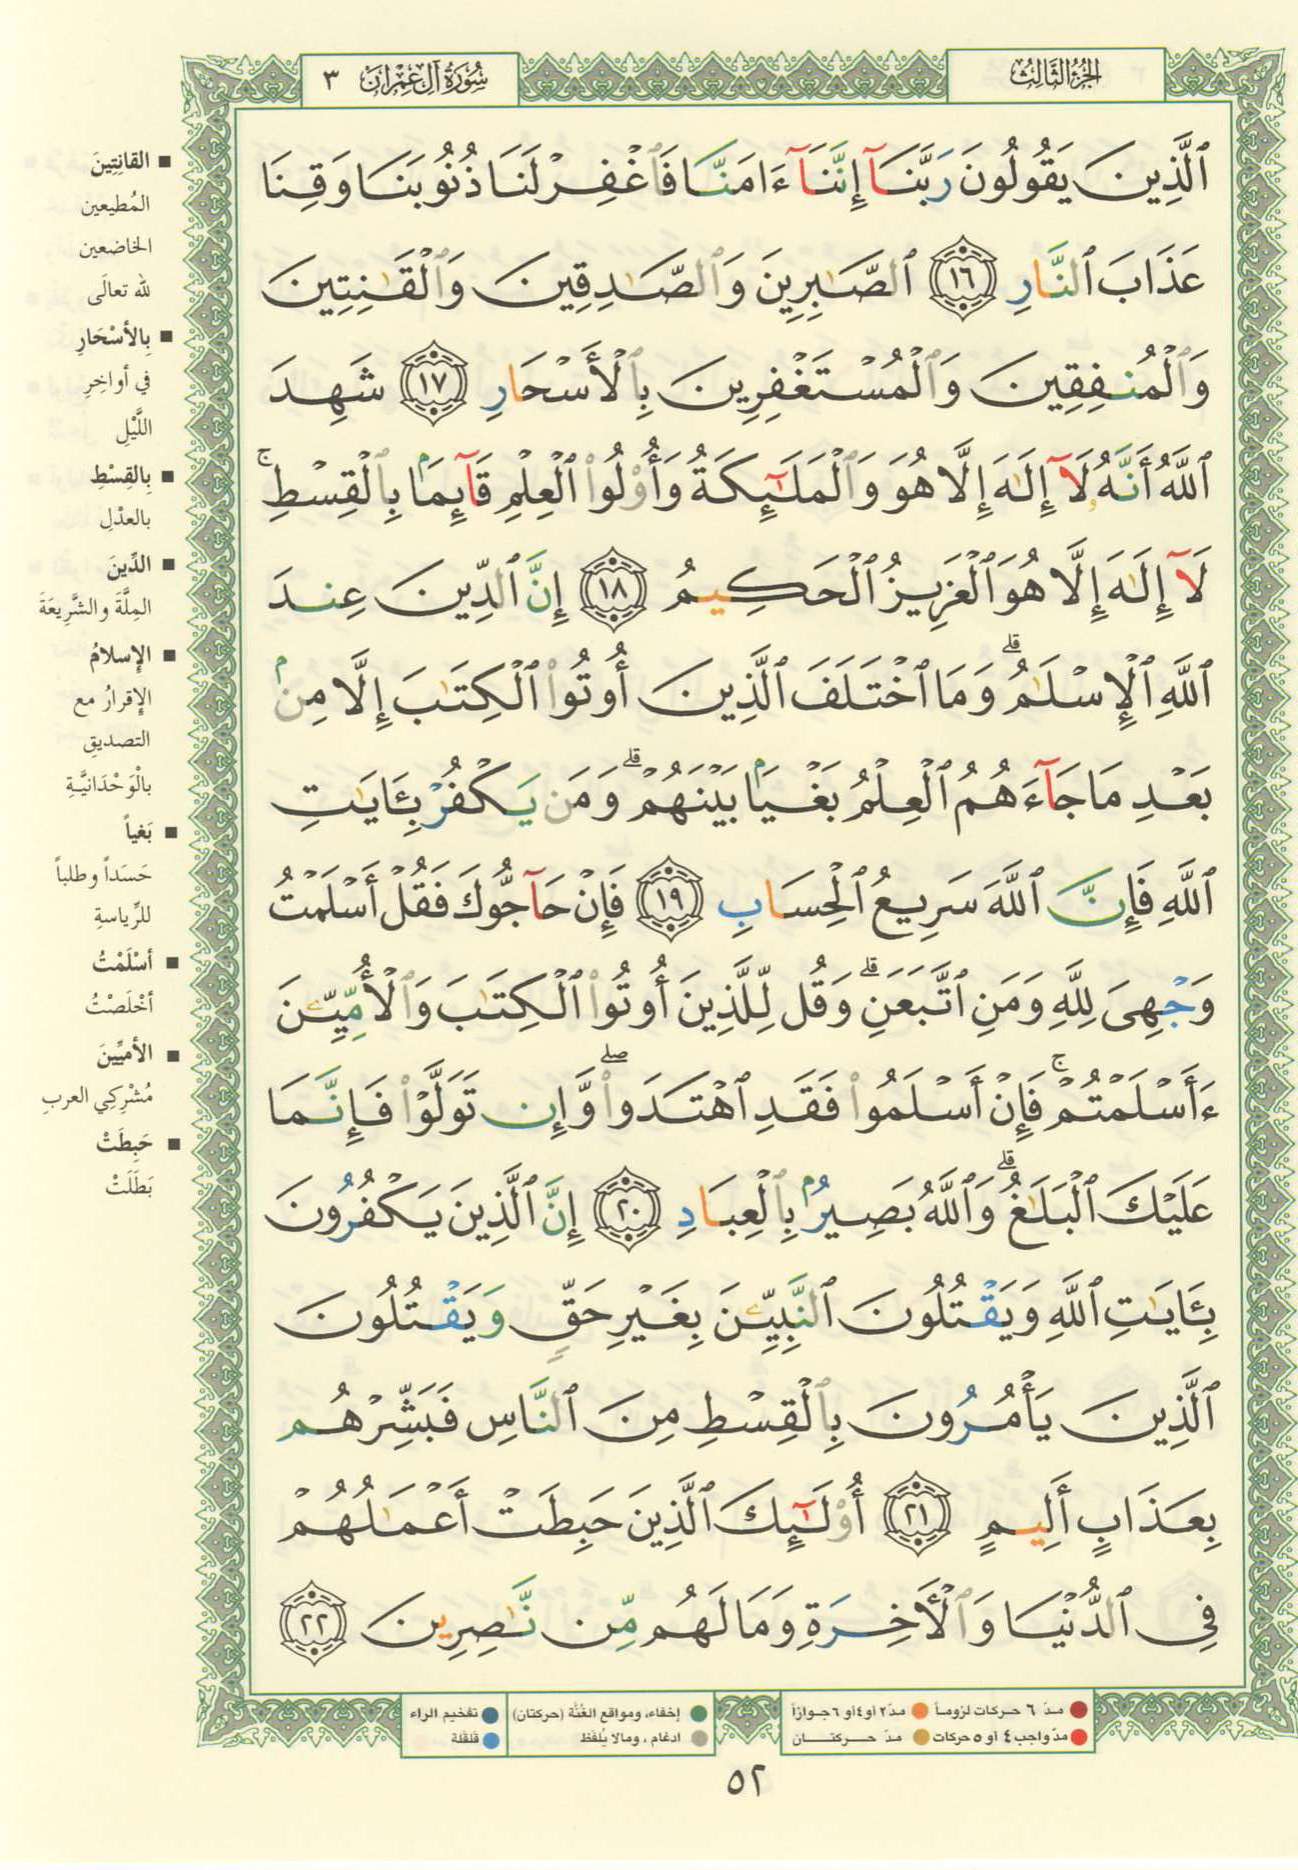 الجزء الثالث
سورة آل عمران ٣
ٱلَّذِينَ يَقُولُونَ رَبَّنَآ إِنَّنَآ ءَامَنَّا فَٱغْفِرْ لَنَا ذُنُوبَنَا وَقِنَا
عَذَابَ ٱلنَّارِ ١٦ ٱلصَّٰبِرِينَ وَٱلصَّٰدِقِينَ وَٱلْقَٰنِتِينَ
وَٱلْمُنفِقِينَ وَٱلْمُسْتَغْفِرِينَ بِٱلْأَسْحَارِ ١٧ شَهِدَ
ٱللَّهُ أَنَّهُۥ لَآ إِلَٰهَ إِلَّا هُوَ وَٱلْمَلَٰٓئِكَةُ وَأُو۟لُوا۟ ٱلْعِلْمِ قَآئِمًۢا بِٱلْقِسْطِ ۚ
لَآ إِلَٰهَ إِلَّا هُوَ ٱلْعَزِيزُ ٱلْحَكِيمُ ١٨ إِنَّ ٱلدِّينَ عِندَ
ٱللَّهِ ٱلْإِسْلَٰمُ ۗ وَمَا ٱخْتَلَفَ ٱلَّذِينَ أُوتُوا۟ ٱلْكِتَٰبَ إِلَّا مِنۢ
بَعْدِ مَا جَآءَهُمُ ٱلْعِلْمُ بَغْيًۢا بَيْنَهُمْ ۗ وَمَن يَكْفُرْ بِـَٔايَٰتِ
ٱللَّهِ فَإِنَّ ٱللَّهَ سَرِيعُ ٱلْحِسَابِ ١٩ فَإِنْ حَآجُّوكَ فَقُلْ أَسْلَمْتُ
وَجْهِىَ لِلَّهِ وَمَنِ ٱتَّبَعَنِ ۗ وَقُل لِّلَّذِينَ أُوتُوا۟ ٱلْكِتَٰبَ وَٱلْأُمِّيِّـۧنَ
ءَأَسْلَمْتُمْ ۚ فَإِنْ أَسْلَمُوا۟ فَقَدِ ٱهْتَدَوا۟ ۖ وَّإِن تَوَلَّوْا۟ فَإِنَّمَا
عَلَيْكَ ٱلْبَلَٰغُ ۗ وَٱللَّهُ بَصِيرٌۢ بِٱلْعِبَادِ ٢٠ إِنَّ ٱلَّذِينَ يَكْفُرُونَ
بِـَٔايَٰتِ ٱللَّهِ وَيَقْتُلُونَ ٱلنَّبِيِّـۧنَ بِغَيْرِ حَقٍّ وَيَقْتُلُونَ
ٱلَّذِينَ يَأْمُرُونَ بِٱلْقِسْطِ مِنَ ٱلنَّاسِ فَبَشِّرْهُم
بِعَذَابٍ أَلِيمٍ ٢١ أُو۟لَٰٓئِكَ ٱلَّذِينَ حَبِطَتْ أَعْمَٰلُهُمْ
فِى ٱلدُّنْيَا وَٱلْأَخِرَةِ وَمَا لَهُم مِّن نَّٰصِرِينَ ٢٢
■ القانِتِينَ
المُطيعين
الخاضعين
لله تعالَى
■ بِالأسْحَارِ
في أواخِرِ
اللَّيْلِ
■ بِالقِسْطِ
بالعدْلِ
■ الدِّينَ
المِلَّةَ والشَّرِيعَةَ
■ الإسلامُ
الإقرارُ مع
التصديقِ
بالْوَحْدَانيَّةِ
■ بَغياً
حَسَداً وطلباً
للرِّياسةِ
■ أسْلَمْتُ
أخْلَصْتُ
■ الأميِّينَ
مُشْرِكِي العربِ
■ حَبِطَتْ
بَطَلَتْ
مدّ ٦ حركات لزوماً ● مدّ ٢ أو ٤ أو ٦ جوازاً
مدّ واجب ٤ أو ٥ حركات ● مدّ حركتان
إخفاء، ومواقع الغُنَّة (حركتان) ● تفخيم الراء
ادغام، ومالا يُلفَظ ● قلقلة
٥٢